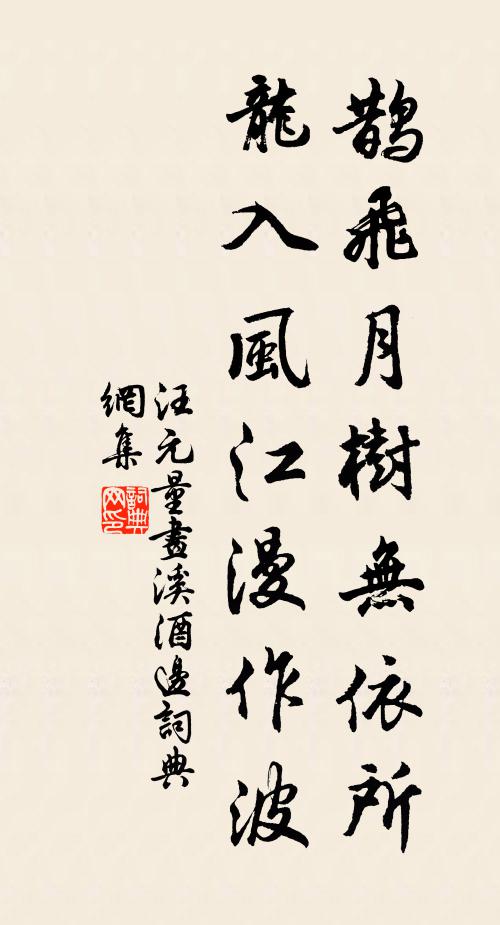 鵲飛月樹無依所
龍入風江漫作波
汪元量畫溪酒邊詞典
網集
詞典網印